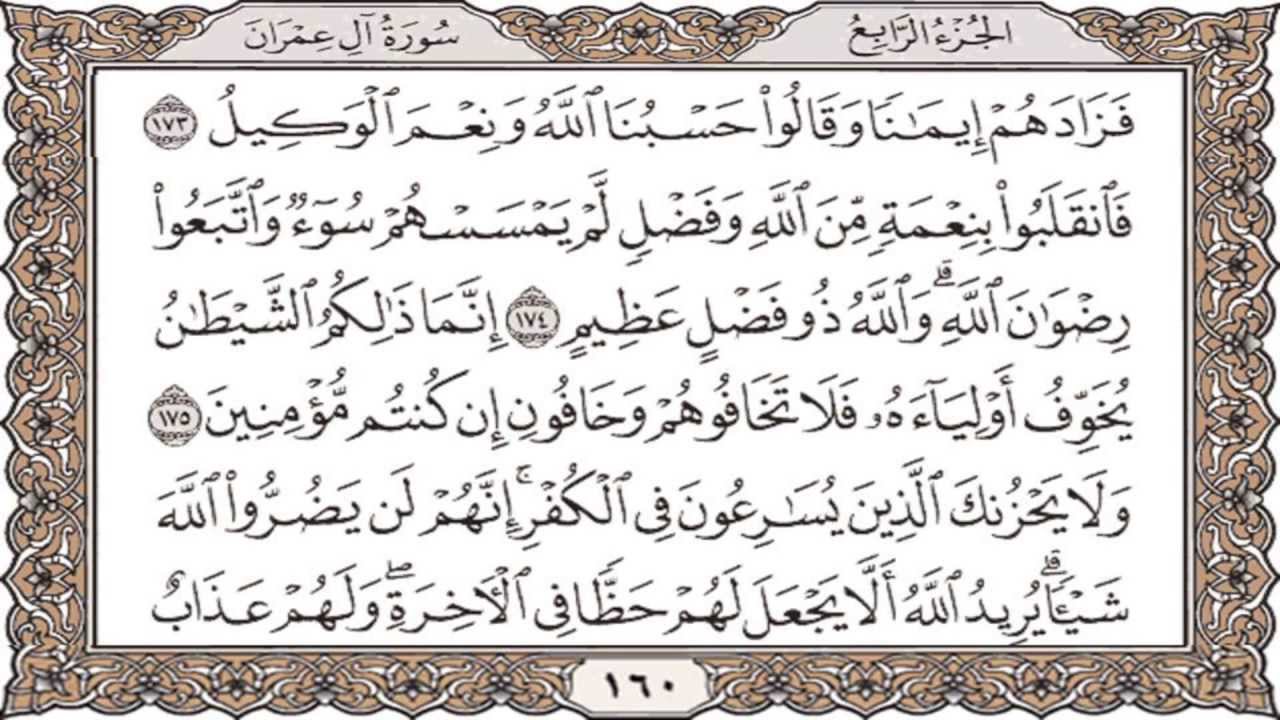 الجُزْءُ الرَّابِعُ
سُورَةُ آلِ عِمْرَانَ
فَزَادَهُمْ إِيمَٰنًا وَقَالُوا۟ حَسْبُنَا ٱللَّهُ وَنِعْمَ ٱلْوَكِيلُ ١٧٣
فَٱنقَلَبُوا۟ بِنِعْمَةٍ مِّنَ ٱللَّهِ وَفَضْلٍ لَّمْ يَمْسَسْهُمْ سُوٓءٌ وَٱتَّبَعُوا۟
رِضْوَٰنَ ٱللَّهِ ۗ وَٱللَّهُ ذُو فَضْلٍ عَظِيمٍ ١٧٤ إِنَّمَا ذَٰلِكُمُ ٱلشَّيْطَٰنُ
يُخَوِّفُ أَوْلِيَآءَهُۥ فَلَا تَخَافُوهُمْ وَخَافُونِ إِن كُنتُم مُّؤْمِنِينَ ١٧٥
وَلَا يَحْزُنكَ ٱلَّذِينَ يُسَٰرِعُونَ فِى ٱلْكُفْرِ ۚ إِنَّهُمْ لَن يَضُرُّوا۟ ٱللَّهَ
شَيْـًٔا ۗ يُرِيدُ ٱللَّهُ أَلَّا يَجْعَلَ لَهُمْ حَظًّا فِى ٱلْـَٔاخِرَةِ ۖ وَلَهُمْ عَذَابٌ
١٦٠